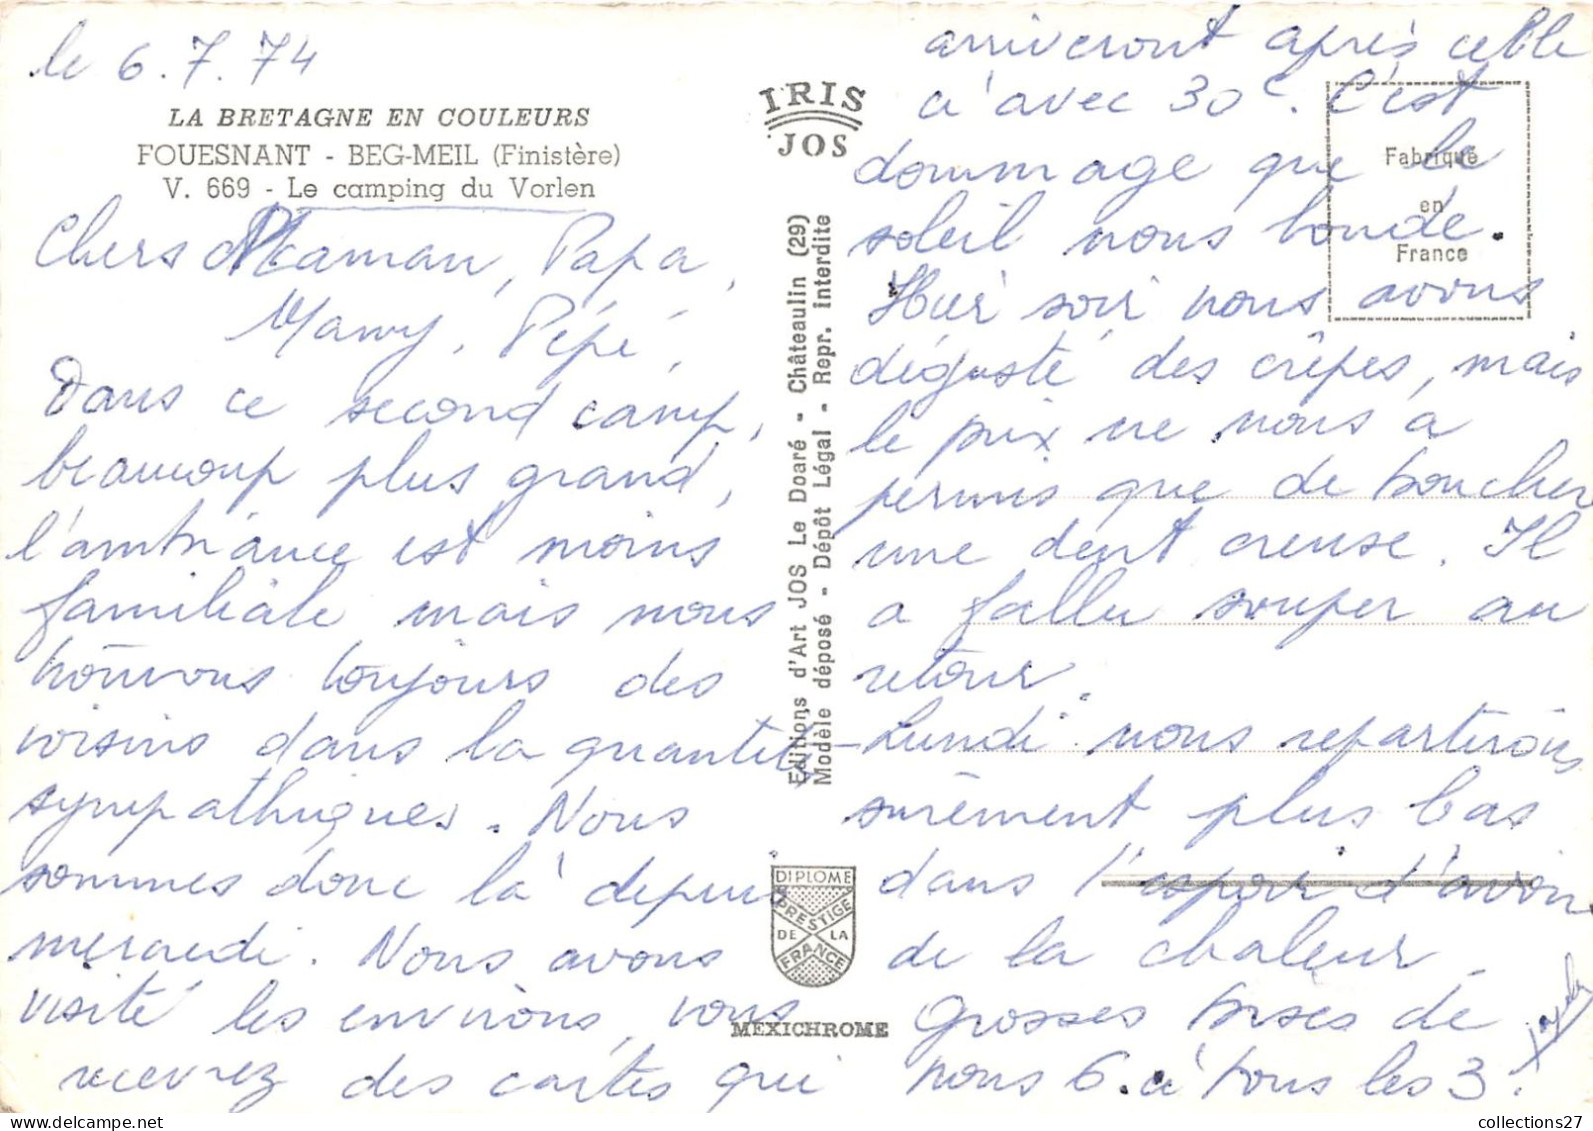 le 6.7.74
LA BRETAGNE EN COULEURS
FOUESNANT - BEG-MEIL (Finistère)
V. 669 - Le camping du Vorlen
Chers Maman, Papa,
Mamy, Pépé,
Dans ce second camp,
beaucoup plus grand,
l'ambiance est moins
familiale mais nous
trouvons toujours des
voisins dans la quantité
sympathiques. Nous
sommes donc là depuis
mercredi. Nous avons
visité les environs, vous
recevrez des cartes qui
IRIS
JOS
Editions d'Art JOS Le Doaré - Châteaulin (29)
Modèle déposé - Dépôt Légal - Repr. interdite
DIPLOME
PRESTIGE
DE LA
FRANCE
MEXICHROME
Fabriqué
en
France
arriveront après celle
ci avec 30c. C'est
dommage que le
soleil nous boude.
Hier soir nous avons
dégusté des crêpes, mais
le prix ne nous a
permis que de boucher
une dent creuse. Il
a fallu souper au
retour.
Lundi nous repartirons
sûrement plus bas
dans l'espoir d'avoir
de la chaleur.
Grosses bises de
nous 6 à tous les 3.
collections27